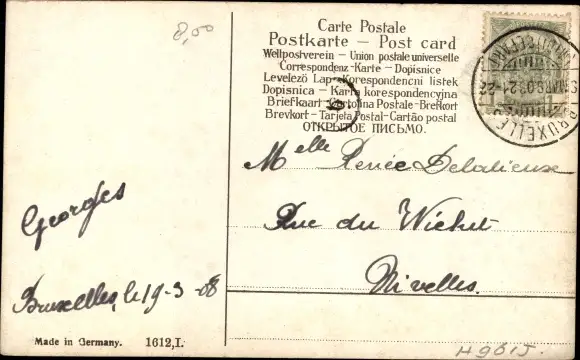 8,00
Carte Postale
Postkarte – Post card
Weltpostverein – Union postale universelle
Correspondenz-Karte – Dopisnice
Levelező Lap – Korespondenční listek
Dopisnica – Karta korespondencyjna
Briefkaart – Cartolina Postale – Brefkort
Brevkort – Tarjeta Postal – Cartão postal
ОТКРЫТОЕ ПИСЬМО.
BRUXELLES
Melle Renée Delalieux
Rue du Wichet
Nivelles.
Georges
Bruxelles, le 19-3-08
Made in Germany. 1612,I.